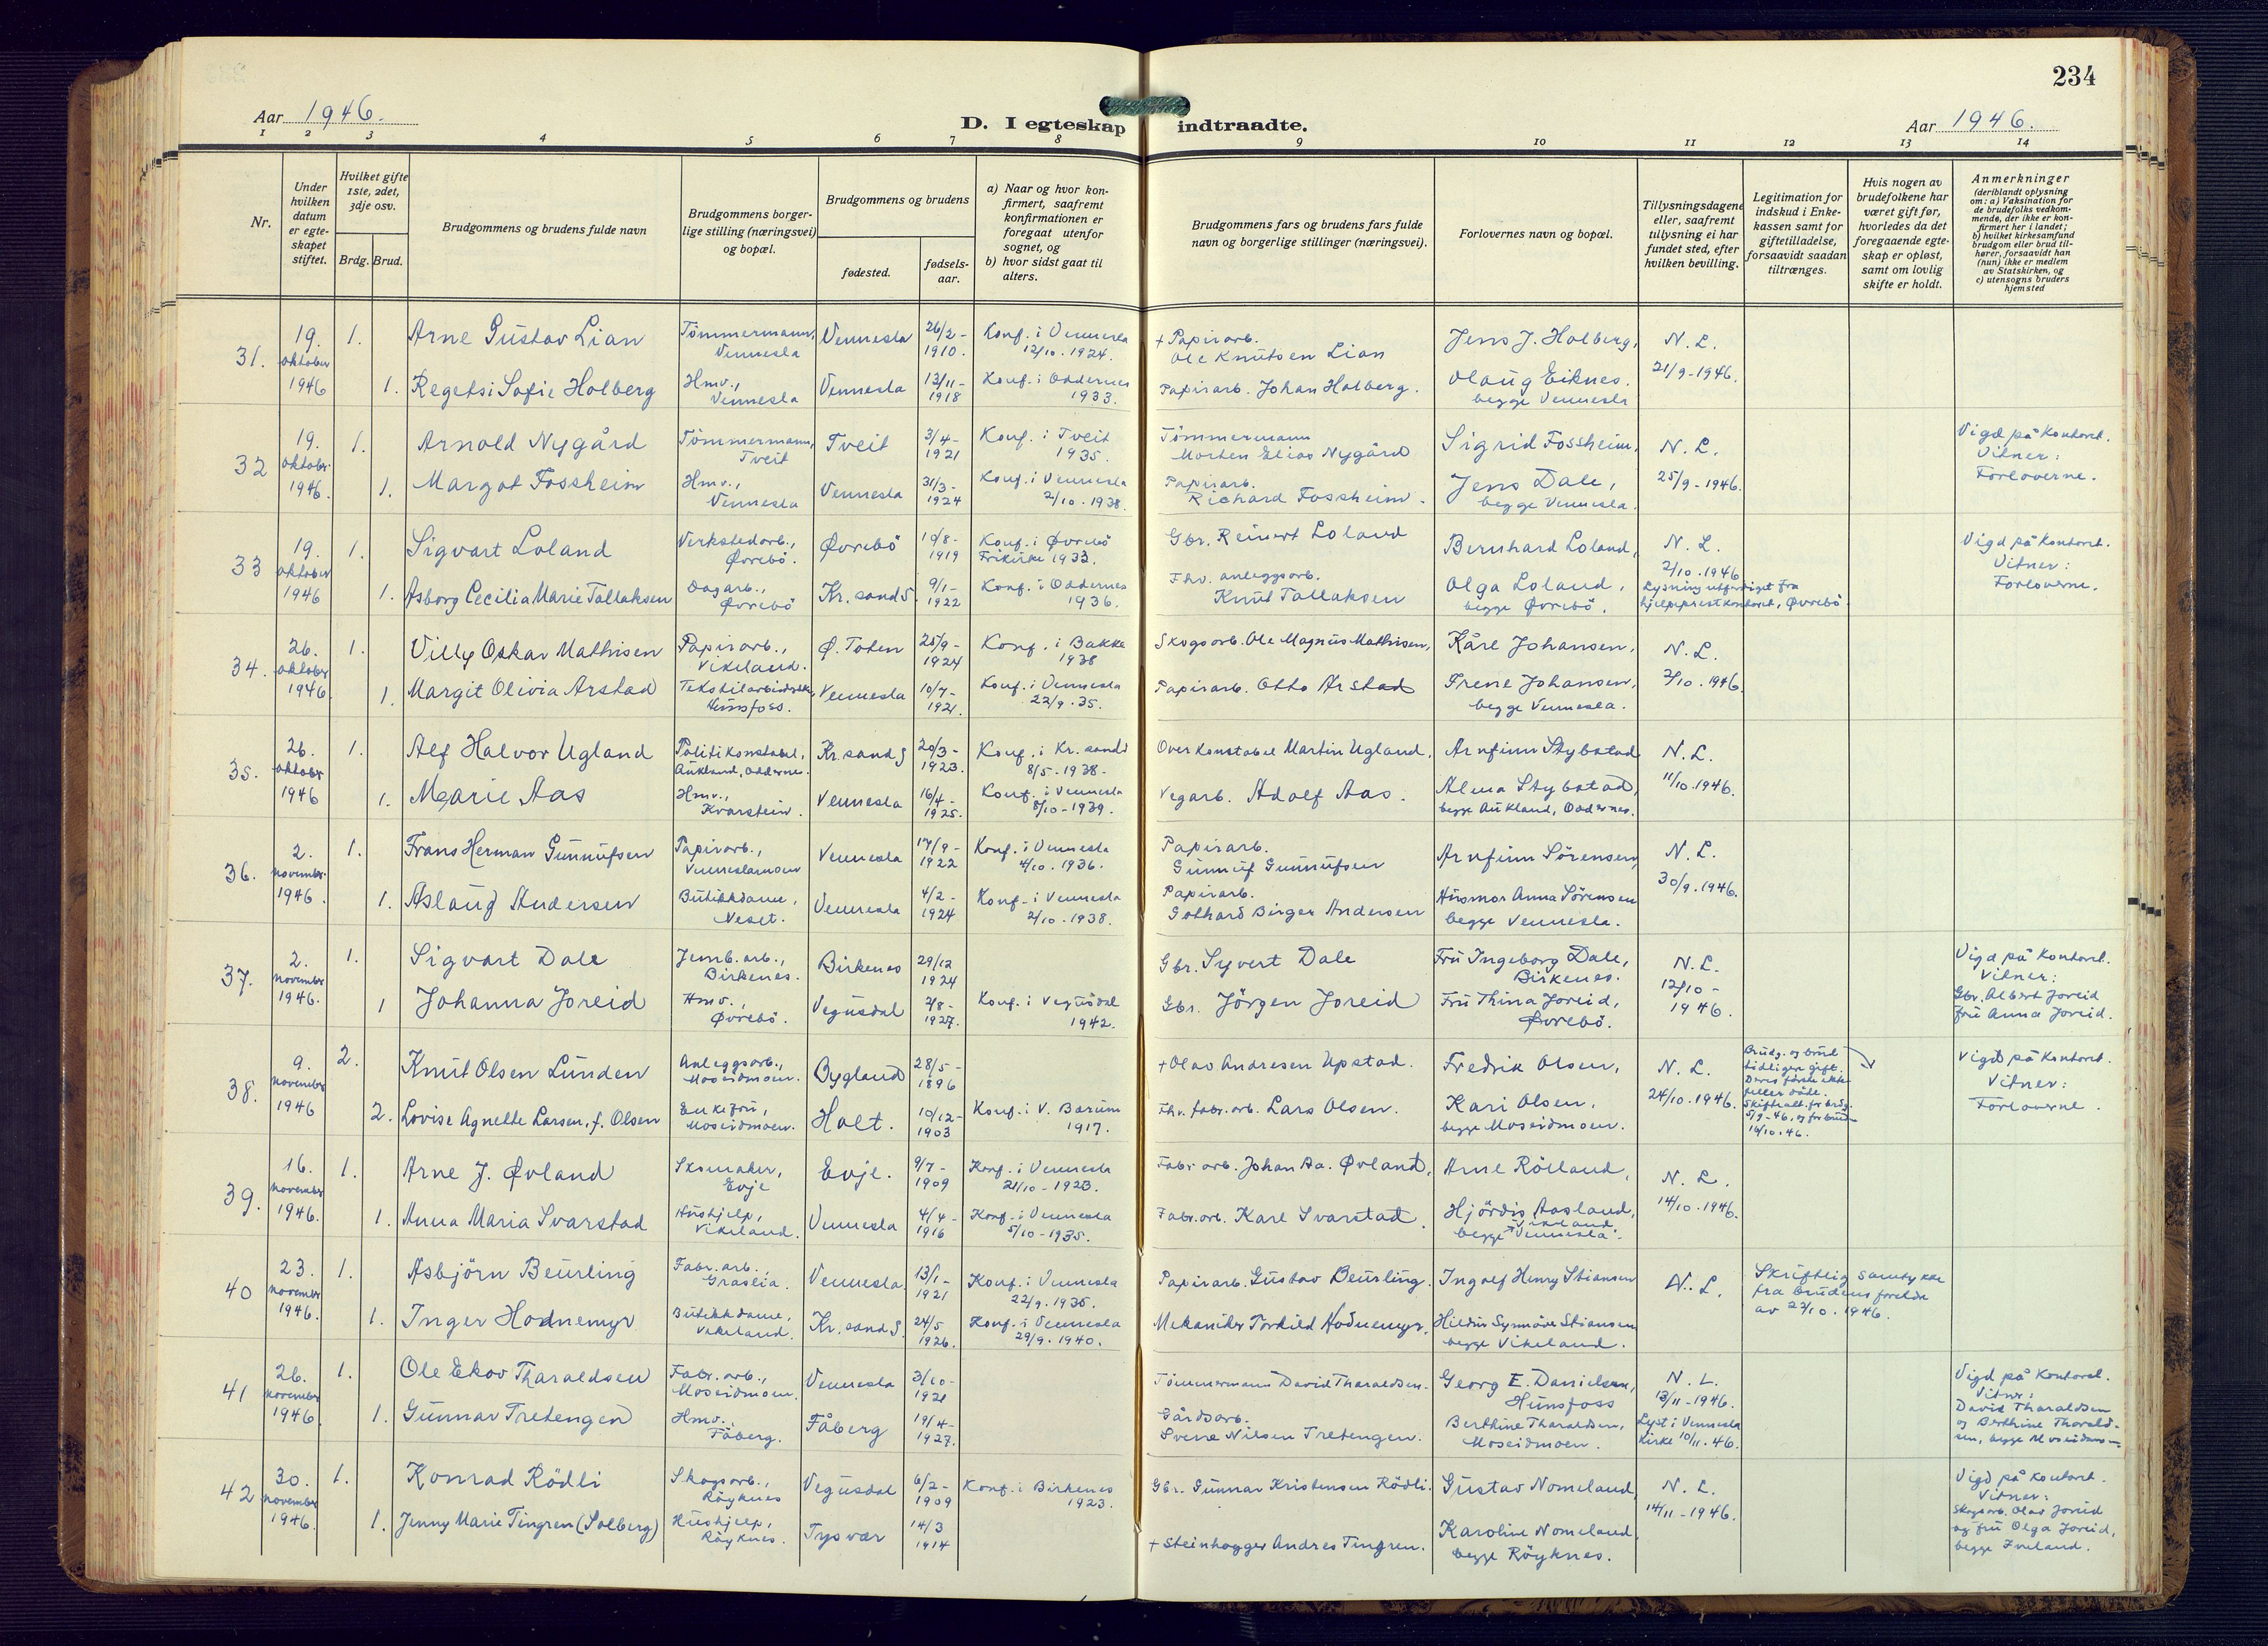 234
Aar 1946.
D. I egteskap indtraadte.
Aar 1946.
1 2 3 4 5 6 7 8 9 10 11 12 13 14
Nr.
Under hvilken datum er egteskapet stiftet.
Hvilket gifte 1ste, 2det, 3dje osv.
Brdg. Brud.
Brudgommens og brudens fulde navn
Brudgommens borgerlige stilling (næringsvei) og bopæl.
Brudgommens og brudens
fødested.
fødselsaar.
a) Naar og hvor konfirmert, saafremt konfirmationen er foregaat utenfor sognet, og
b) hvor sidst gaat til alters.
Brudgommens fars og brudens fars fulde navn og borgerlige stillinger (næringsvei).
Forlovernes navn og bopæl.
Tillysningsdagene eller, saafremt tillysning ei har fundet sted, efter hvilken bevilling.
Legitimation for indskud i Enkekassen samt for giftetilladelse, forsaavidt saadan tiltrænges.
Hvis nogen av brudefolkene har været gift før, hvorledes da det foregaaende egteskap er opløst, samt om lovlig skifte er holdt.
Anmerkninger
(deriblandt oplysning om: a) Vaksination for de brudefolks vedkommende, der ikke er konfirmert her i landet; b) hvilket kirkesamfund brudgom eller brud tilhører, forsaavidt han (hun) ikke er medlem av Statskirken, og c) utensogns bruders hjemsted
31. 19. oktober 1946 1. Arne Gustav Lian Tömmermann, Vennesla Vennesla 26/2 - 1910. Konf. i Vennesla 12/10. 1924. + Papirarb. Ole Knutsen Lian Jens J. Holberg, N. L. 21/9 - 1946.
1. Regetsi Sofie Holberg Hmv., Vennesla Vennesla 13/11 - 1918 Konf. i Oddernes 1933. Papirarb. Johan Holberg. Olaug Eiknes. begge Vennesla
32 19. oktober 1946. 1. Arnold Nygård Tömmermann, Tveit Tveit 3/4 - 1921 Konf. i Tveit 1935. Tömmermann Morten Elias Nygård Sigrid Fossheim, N. L. 25/9 - 1946. Vigd på kontoret. Vitner: Forloverne.
1. Margot Fossheim Hmv., Vennesla Vennesla 31/3 - 1924 Konf. i Vennesla 2/10. 1938. Papirarb. Richard Fossheim. Jens Dale, begge Vennesla.
33 19. oktober 1946 1. Sigvart Loland Verkstedarb., Øvrebö. Øvrebö 19/8 - 1919 Konf. i Øvrebö Frikirke 1933. Gbr. Reinert Loland Bernhard Loland, N. L. 2/10. 1946 Lysning utferdiget fra hjelpeprestkontoret, Øvrebö. Vigd på kontoret. Vitner: Forloverne.
1. Asborg Cecilia Marie Tallaksen Dagarb., Øvrebö Kr. sand S. 9/1 - 1922 Konf. i Oddernes 1936. Fhv. anleggsarb. Knut Tallaksen Olga Loland, begge Øvrebö.
34. 26. oktober 1946. 1. Villy Oskar Mathisen Papirarb., Vikeland. Ø. Toten 25/9 - 1924 Konf. i Bakke 1938 Skogsarb. Ole Magnus Mathisen, Kåre Johansen, N. L. 2/10. 1946.
1. Margit Olivia Arstad Tekstilarbeiderske, Hunsfoss. Vennesla 10/7 - 1921. Konf. i Vennesla 22/9. 35. Papirarb. Otto Arstad Irene Johansen, begge Vennesla.
35. 26. oktober 1946 1. Alf Halvor Ugland Politikonstabel, Aukland, Oddernes. Kr. sand S 20/3 - 1923. Konf. i Kr. sand S 8/5 - 1938 - Overkonstabel Martin Ugland. Arnfinn Stybstad N. L. 11/10. 1946.
1. Marie Aas Hmv., Kvarstein. Vennesla 16/4 - 1925. Konf. i Vennesla 8/10 - 1939. Vegarb. Adolf Aas. Alma Stybstad, begge Aukland, Oddernes.
36. 2. november 1946. 1. Frans Herman Gunnufsen Papirarb., Venneslamoen Vennesla 17/9 - 1922 Konf. i Vennesla 4/10. 1936. Papirarb. Gunnuf Gunnufsen Arnfinn Sörensen, N. L. 30/9. 1946.
1. Aslaug Andersen Butikkdame, Neset. Vennesla 4/2 - 1924 Konf. i Vennesla 2/10. 1938. Papirarb. Gothard Birger Andersen Husmor Anna Sörensen begge Vennesla.
37. 2. november 1946. 1. Sigvart Dale Jernb. arb., Birkenes. Birkenes 29/12 1924 Gbr. Syvert Dale Fru Ingeborg Dale, Birkenes. N. L. 12/10 - 1946. Vigd på kontoret. Vitner: Gbr. Albert Joreid fru Anna Joreid.
1 Johanna Joreid Hmv., Øvrebö. Vegusdal 2/8 - 1927. Konf. i Vegusdal 1942. Gbr. Jörgen Joreid Fru Thina Joreid, Øvrebö.
38. 9. november 1946 2. Knut Olsen Lunden Anleggsarb., Moseidmoen. Bygland 28/5 - 1896 + Olav Andresen Upstad. Fredrik Olsen, N. L. 24/10. 1946. Brudg. og brud tidligere gift. Deres første ektefeller døde. Skifteatt. for brdg. 5/9 - 46, og for brud 16/10. 46. Vigd på kontoret. Vitner: Forloverne.
2. Lovise Agnethe Larsen, f. Olsen Enkefru, Moseidmoen. Holt. 10/12 - 1903 Konf. i V. Bærum 1917. Fhv. fabr. arb. Lars Olsen. Kari Olsen, begge Moseidmoen.
39. 16. november 1946. 1. Arne J. Øvland Skomaker, Evje Evje. 9/7 - 1909 Konf. i Vennesla 21/10 - 1923. Fabr. arb. Johan Aa. Øvland, Arne Rölland, N. L. 14/10. 1946.
1. Anna Maria Svarstad Hushjelp, Vikeland. Vennesla 4/4 - 1916 Konf. i Vennesla 5/10 - 1935. Fabr. arb. Karl Svarstad. Hjördis Aasland, Vikeland. begge Vennesla.
40 23. november 1946. 1. Asbjörn Beurling Fabr. arb., Graslia. Vennesla 13/1 - 1921 Konf. i Vennesla 22/9. 1935. Papirarb. Gustav Beurling. Ingolf Henry Stiansen N. L. Skriftlig samtykke fra brudens foreldre av 22/10. 1946.
1. Inger Hodnemyr Butikkdame, Vikeland. Kr. sand S. 24/5 1926. Konf. i Vennesla 29/9. 1940. Mekaniker Torkild Hodnemyr, Hildur Synnöve Stiansen begge Vikeland.
41 26. november 1946. 1. Ole Ekov Tharaldsen Fabr. arb., Moseidmoen. Vennesla 3/10 - 1921 Tömmermann David Tharaldsen. Georg E. Danielsen, Hunsfoss N. L. 13/11 - 1946. Lyst i Vennesla kirke 10/11. 46. Vigd på kontoret. Vitner: David Tharaldsen og Berthine Tharaldsen, begge Moseidmoen
1. Gunnar Tretengen Hmv., Fåberg. Fåberg 19/4 - 1927. Gårdsarb. Svene Nilsen Tretengen. Berthine Tharaldsen, Moseidmoen.
42 30. november 1946. 1. Konrad Rödli Skogsarb., Röyknes Vegusdal 6/2 - 1909 Konf. i Birkenes 1923. Gbr. Gunnar Kristensen Rödli. Gustav Nomeland, N. L. 14/11 - 1946. Vigd på kontoret. Vitner: Skogsarb. Olav Joreid og fru Olga Joreid, begge Iveland.
1. Jenny Marie Tingren (Solberg) Hushjelp, Röyknes. Tysvær 14/3 1914 + Steinhogger Andres Tingren. Karoline Nomeland, begge Röyknes.